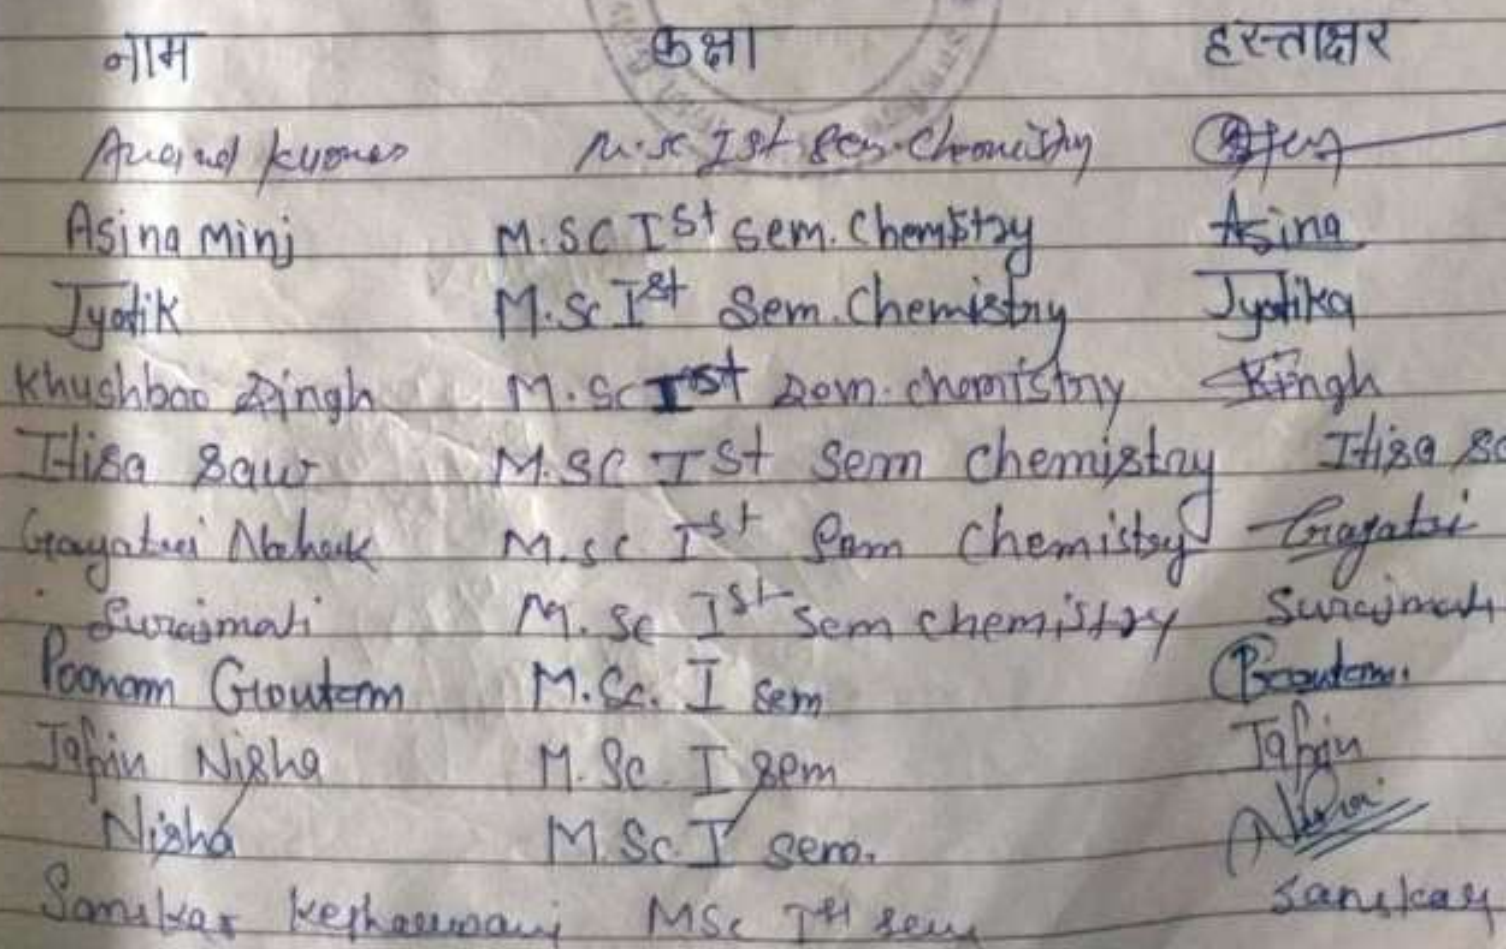 नाम कक्षा हस्ताक्षर
Anand kumar M.sc Ist sem. Chemistry
Asina Minj M.SC Ist sem. Chemistry Asina
Jyotik M.Sc Ist Sem. Chemistry Jyotika
Khushboo Singh M.Sc Ist Sem. chemistry KSingh
M.SC Ist Sem Chemistry
Gayatri M.sc Ist Sem Chemistry Gayatri
Surajmati M. Sc Ist sem chemistry Surajmati
Poonam Goutam M.Sc. I sem PGoutam.
Tafrin Nisha M.Sc. I sem Tafrin
Nisha M.Sc. I sem. Nisha
Sanskar Kesharwani MSc Ist sem Sanskar